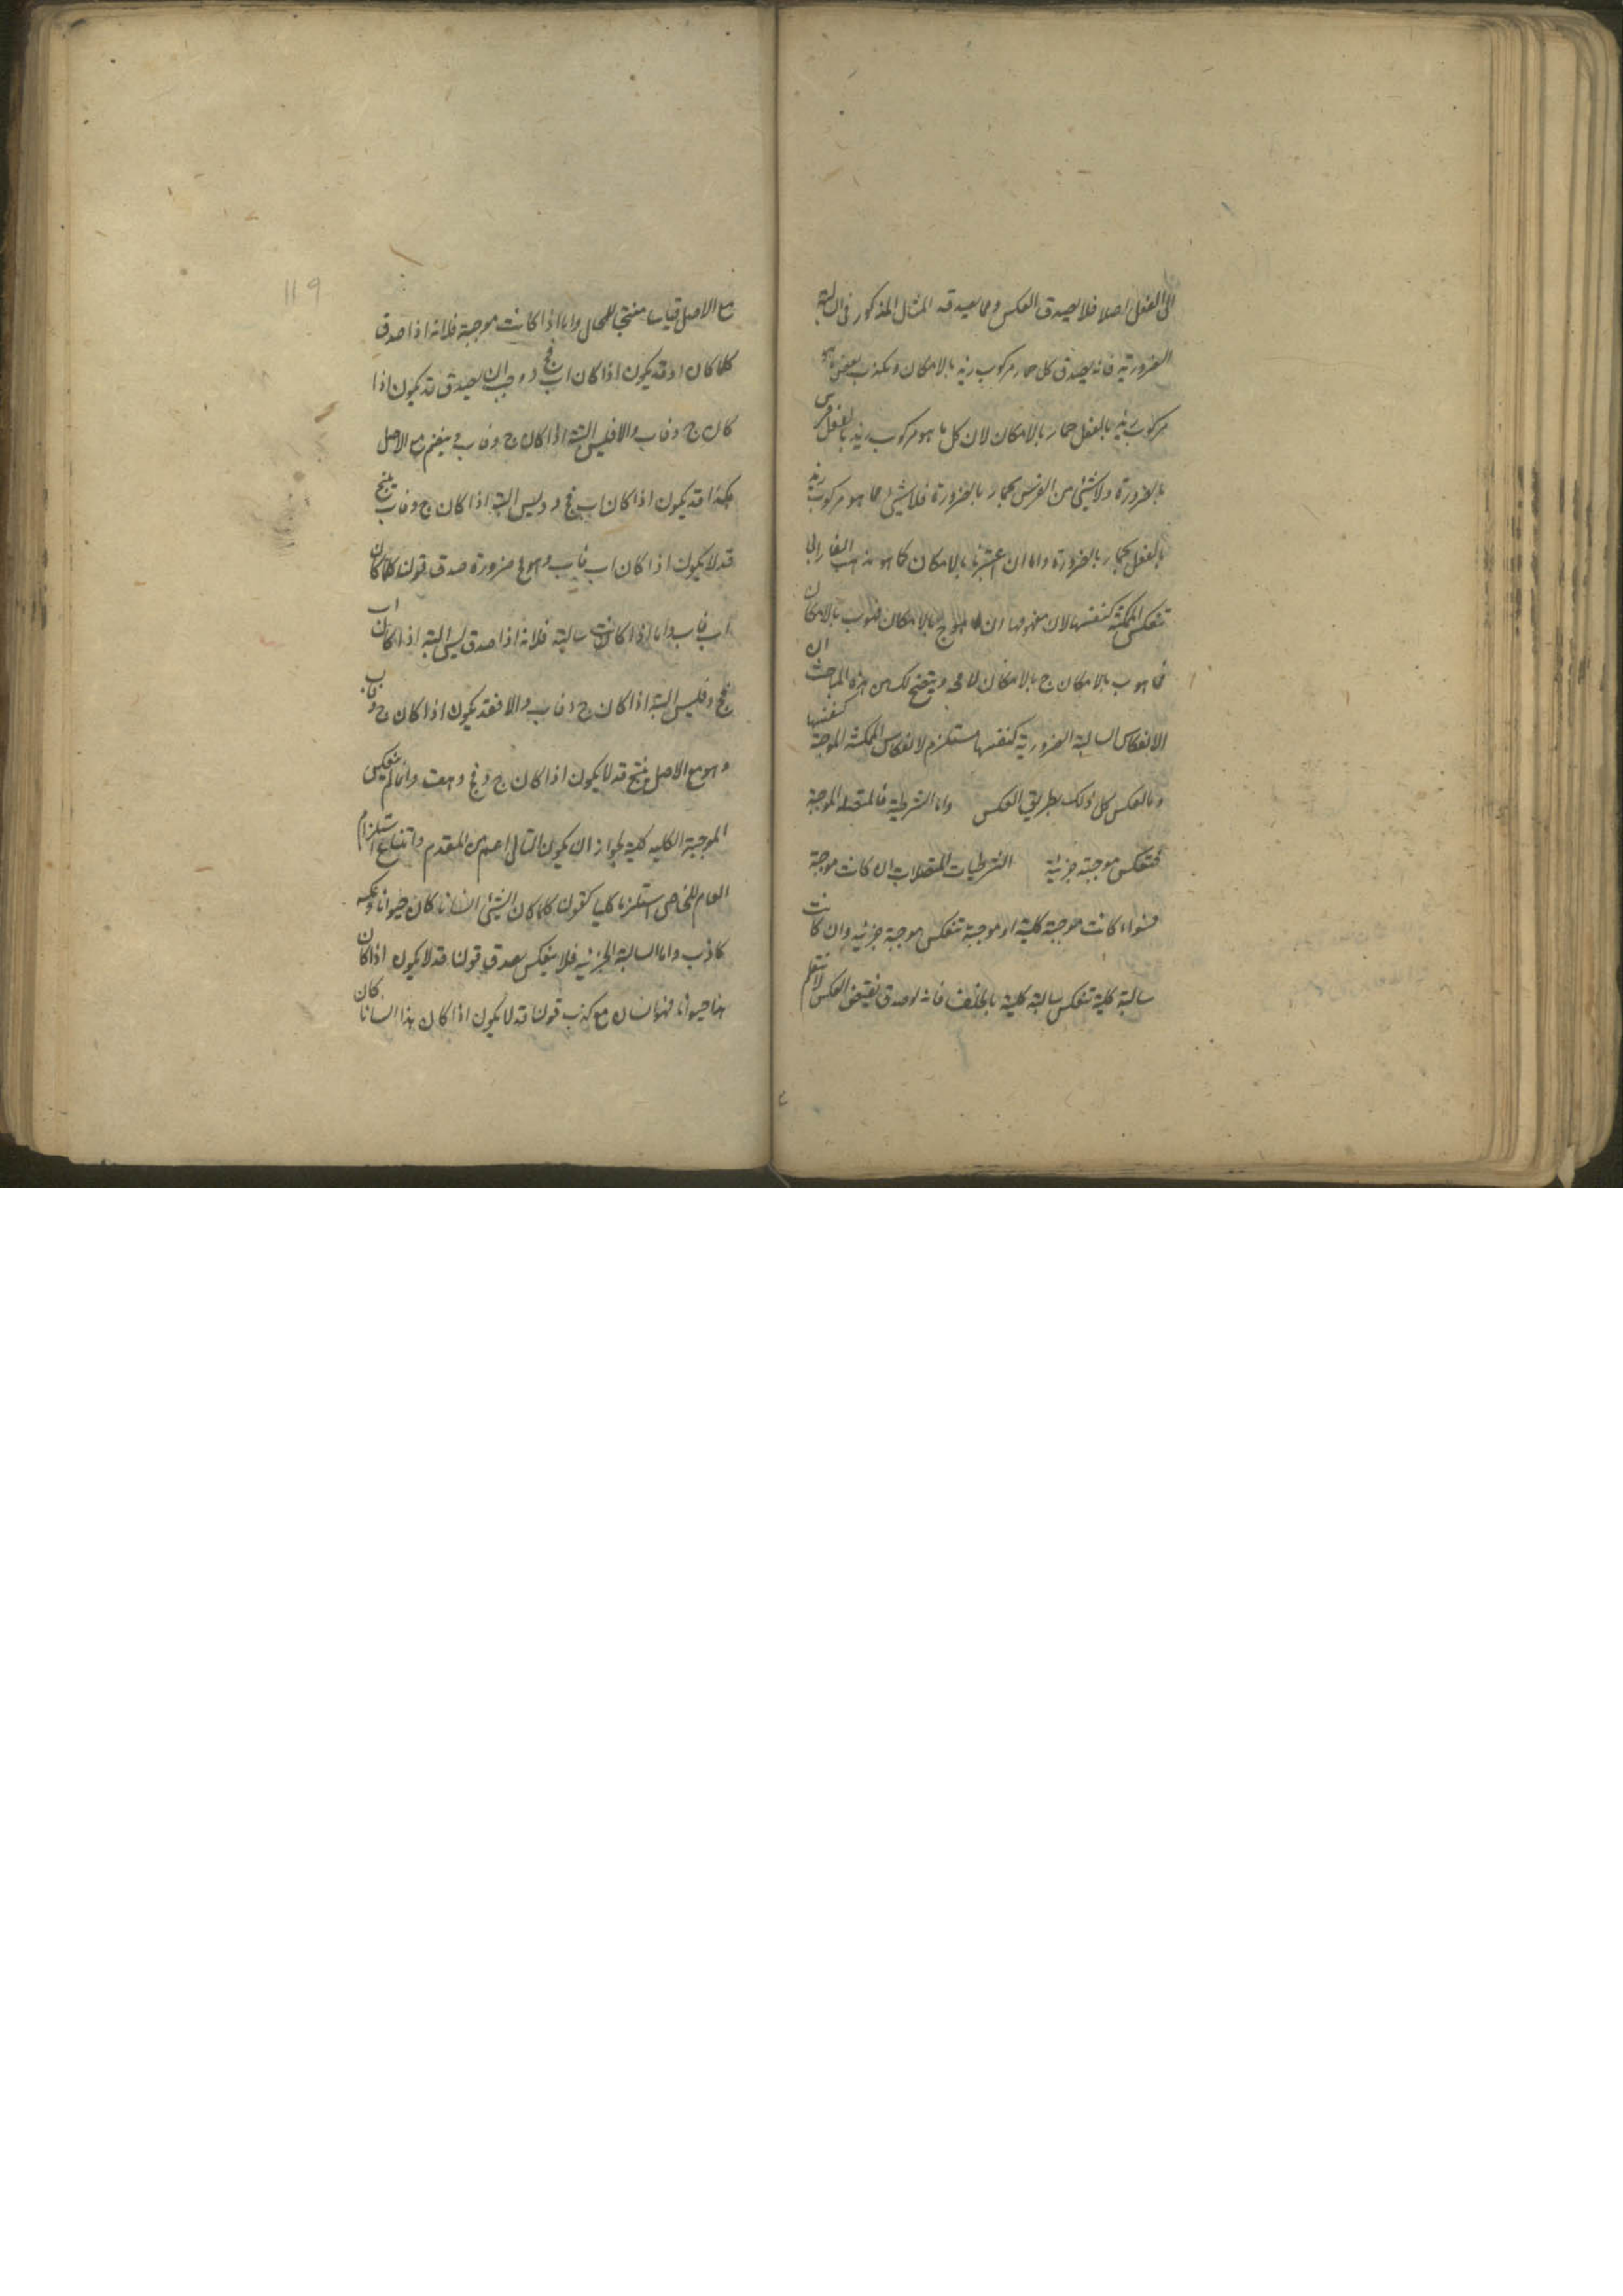 الى الفعل اصلا فلا يصدق العكس ومما يصدقه المثال المذكور فى السالبة
الضرورية فانه يصدق كل حمار مركوب زيد بالامكان ويكذب بعض ما هو
مركوب زيد بالفعل حمار بالامكان لان كل ما هو مركوب زيد بالفعل فرس
بالضرورة ولا شئ من الفرس بحمار بالضرورة فلا شئ مما هو مركوب زيد
بالفعل بحمار بالضرورة واما ان اعتبرناه بالامكان كما هو مذهب الفارابى
تنعكس الممكنة كنفسها لان مفهومها ان ما هو ج بالامكان فهو ب بالامكان
فما هو ب بالامكان ج بالامكان لا محه ويتضح لك من هذه المباحث ان
الانعكاس السالبة الضرورية كنفسها مستلزم لانعكاس الممكنة الموجبة كنفسها
وبالعكس كل ذلك بطريق العكس واما الشرطية فالمتصلة الموجبة
تنعكس موجبة جزئية الشرطيات المتصلات ان كانت موجبة
فسواء كانت موجبة كلية او موجبة تنعكس موجبة جزئية وان كانت
سالبة كلية تنعكس سالبة كلية بالخلف فانه لو صدق نقيض العكس لانتظم
119
مع الاصل قياسا منتجا للمحال واما اذا كانت موجبة فلانه اذا صدق
كلما كان او قد يكون اذا كان اب فج د وجب ان يصدق قد يكون اذا
كان ج د فاب والا فليس البتة اذا كان ج د فاب وينضم مع الاصل
هكذا قد يكون اذا كان اب فج د وليس البتة اذا كان ج د فاب ينتج
قد لا يكون اذا كان اب فاب وهو مح ضرورة صدق قولنا كلما كان
اب فاب واما اذا كانت سالبة فلانه اذا صدق ليس البتة اذا كان اب
فج د فليس البتة اذا كان ج د فاب والا فقد يكون اذا كان ج د فاب
وهو مع الاصل ينتج قد لا يكون اذا كان ج د فج د هف وانما لم ينعكس
الموجبة الكلية كلية لجواز ان يكون التالى اعم من المقدم وامتناع استلزام
العام للخاص استلزاما كليا كقولنا كلما كان الشئ انسانا كان حيوانا وعكسه
كاذب واما السالبة الجزئية فلا ينعكس لصدق قولنا قد لا يكون اذا كان
هذا حيوانا فهو انسان مع كذب قولنا قد لا يكون اذا كان هذا انسانا كان